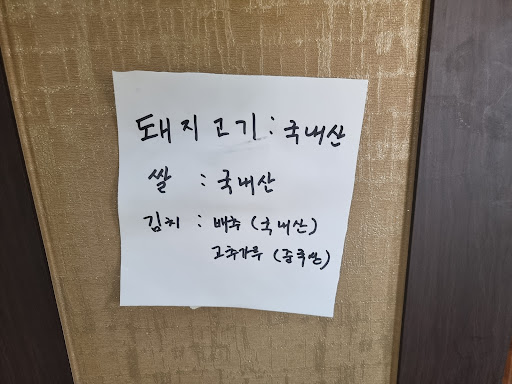 돼지고기 : 국내산
쌀 : 국내산
김치 : 배추 (국내산)
고추가루 (중국산)